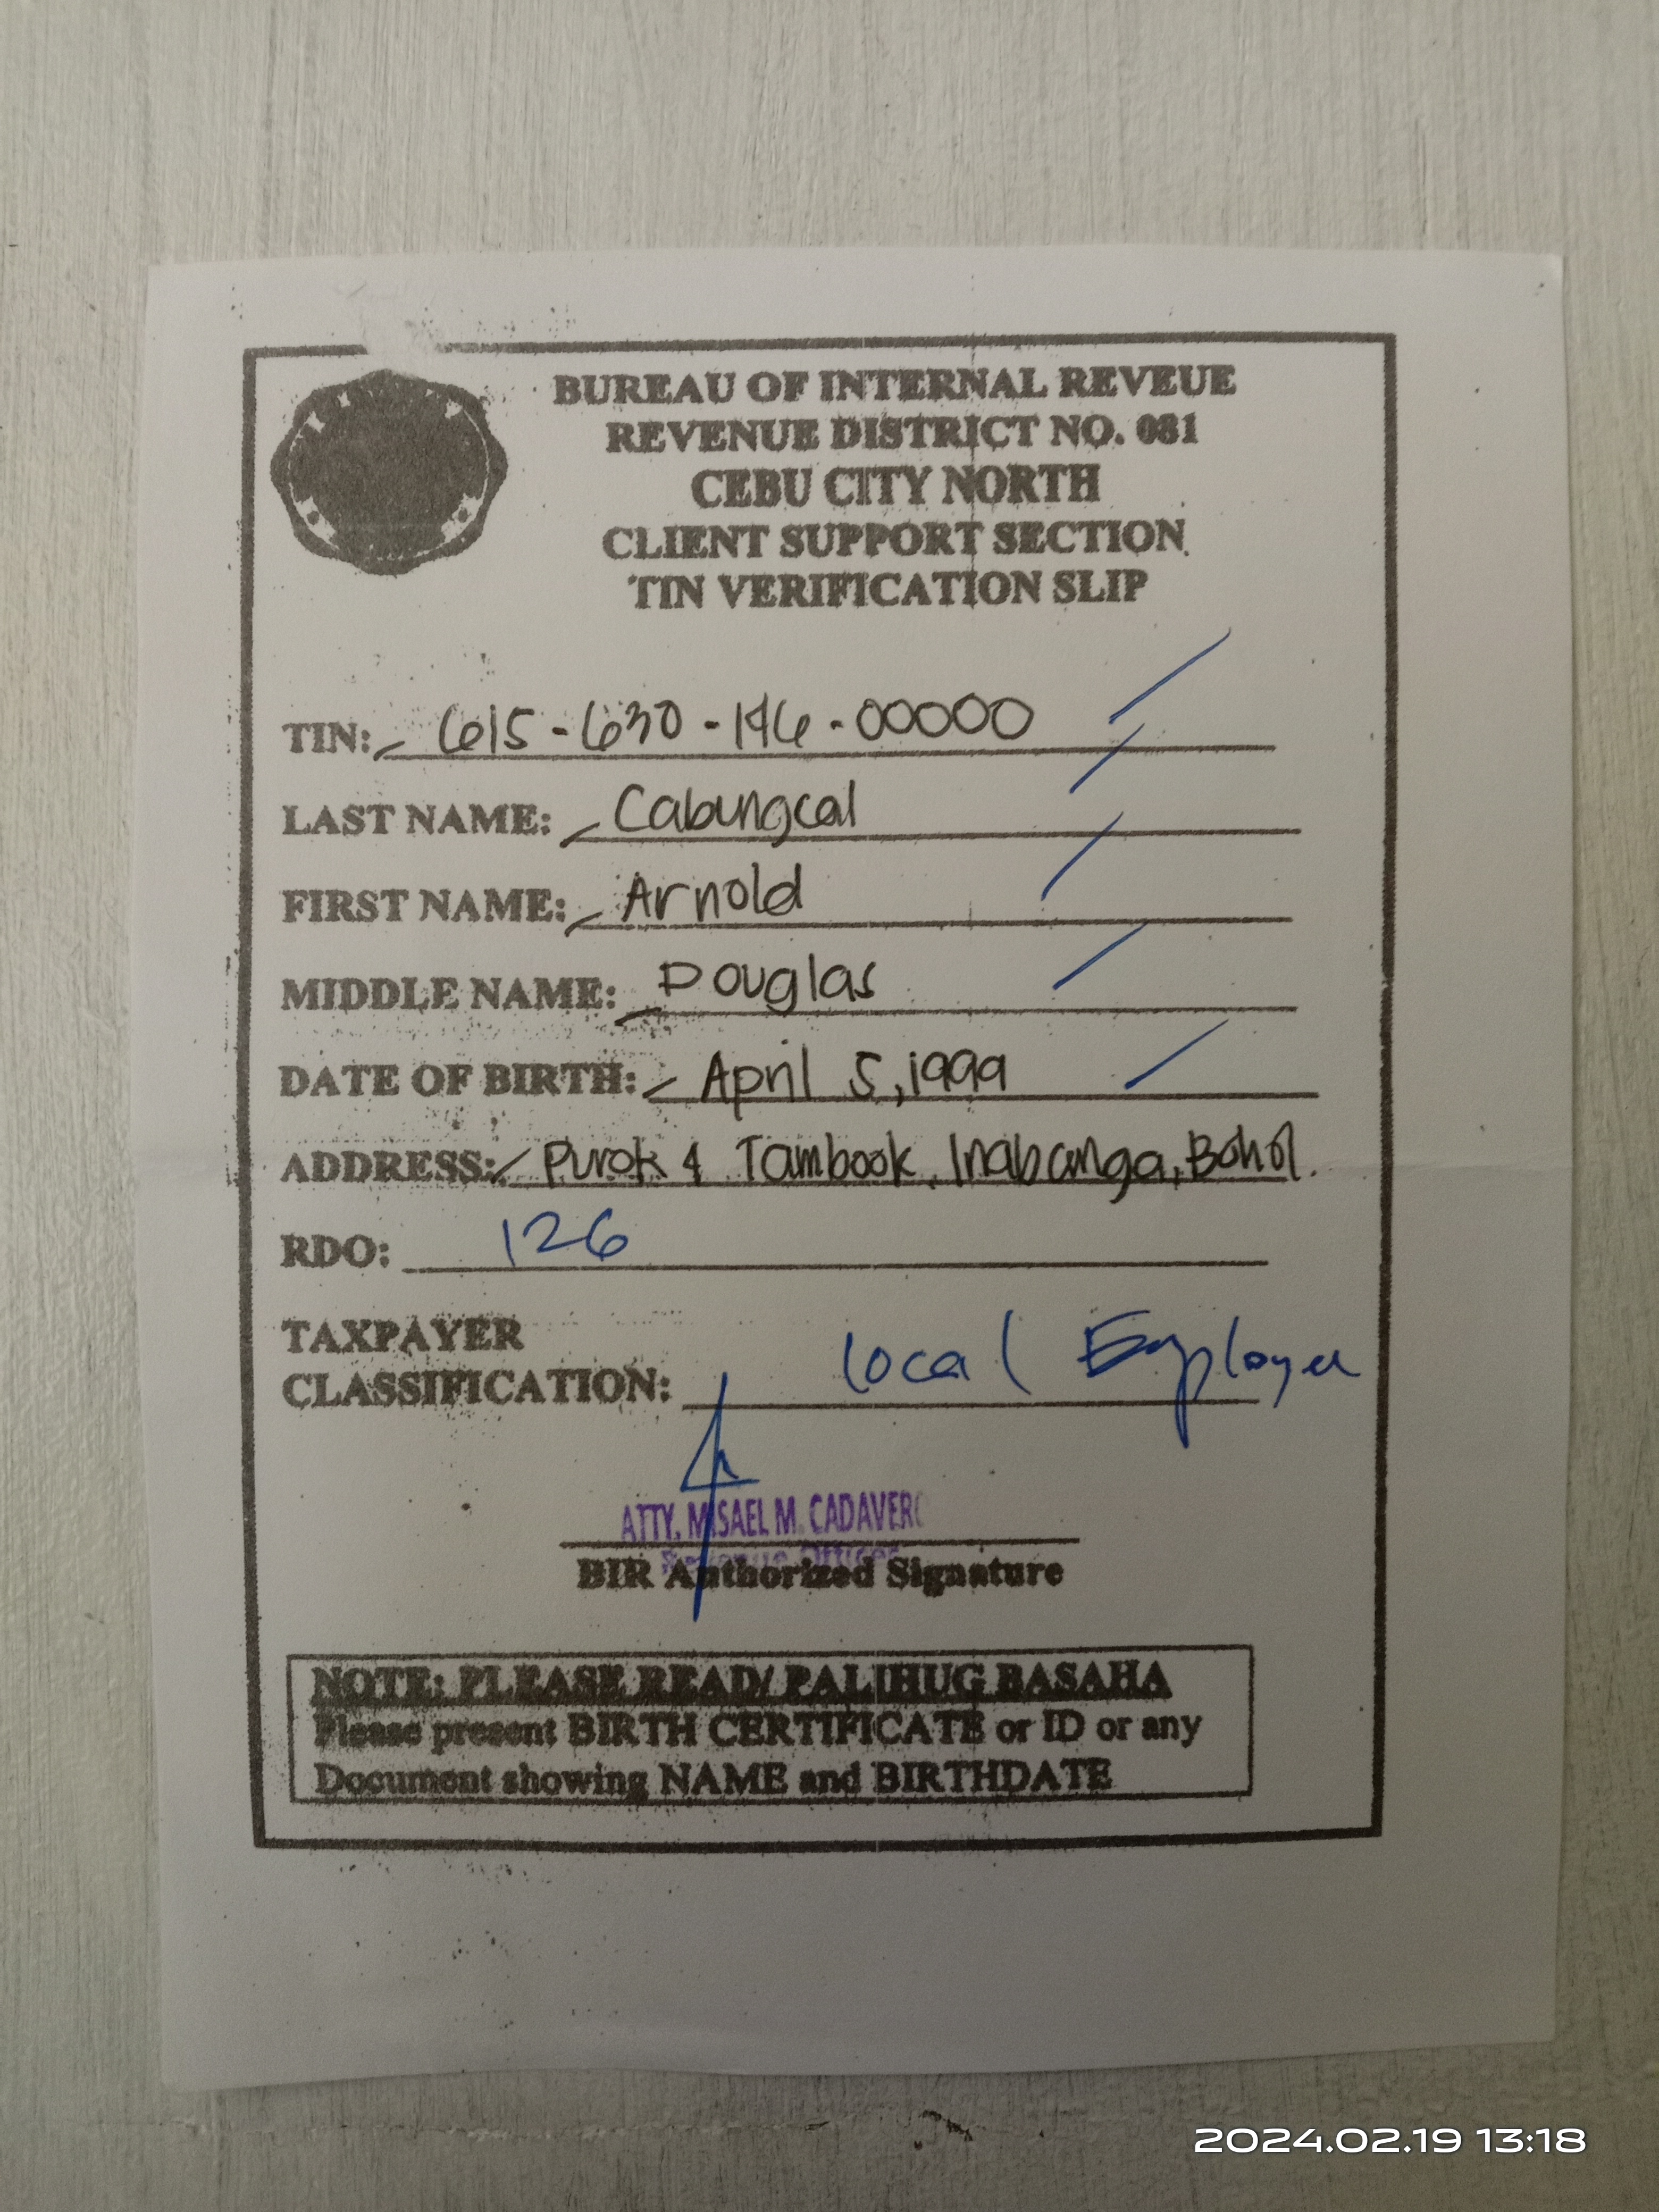 BUREAU OF INTERNAL REVEUE
REVENUE DISTRICT NO. 081
CEBU CITY NORTH
CLIENT SUPPORT SECTION
TIN VERIFICATION SLIP
TIN: 615-630-146-00000
LAST NAME: Cabungcal
FIRST NAME: Arnold
MIDDLE NAME: Douglas
DATE OF BIRTH: April 5, 1999
ADDRESS: Purok 4 Tambook, Inabanga, Bohol.
RDO: 126
TAXPAYER
CLASSIFICATION: local Employee
ATTY. MISAEL M. CADAVERO
Revenue Officer
BIR Authorized Signature
NOTE: PLEASE READ/ PALIHUG BASAHA
Please present BIRTH CERTIFICATE or ID or any
Document showing NAME and BIRTHDATE
2024.02.19 13:18